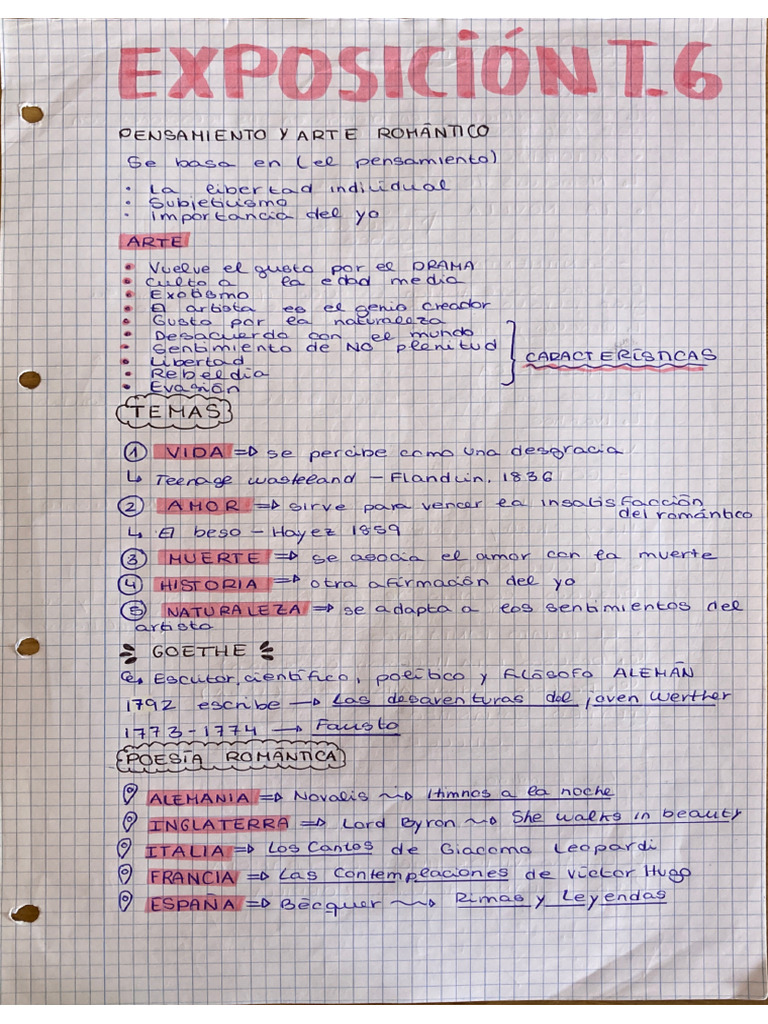 EXPOSICIÓN T.6
PENSAMIENTO Y ARTE ROMÁNTICO
Se basa en (el pensamiento)
· La libertad individual
· Subjetivismo
· Importancia del yo
ARTE
• Vuelve el gusto por el DRAMA
• Culto a la edad media
• Exotismo
• El artista es el genio creador
• Gusto por la naturaleza
• Desacuerdo con el mundo
• Sentimiento de NO plenitud
• Libertad
CARACTERÍSTICAS
• Rebeldía
• Evasión
TEMAS
① VIDA => se percibe como una desgracia
↳ Teenage wasteland - Flandrin. 1836
② AMOR => sirve para vencer la insatisfacción
del romántico
↳ El beso - Hayez 1859
③ MUERTE => se asocia el amor con la muerte
④ HISTORIA => otra afirmación del yo
⑤ NATURALEZA => se adapta a los sentimientos del
artista
GOETHE
↳ Escritor, científico, político y filósofo ALEMÁN
1792 escribe → Las desaventuras del joven Werther
1773-1774 → Fausto
POESÍA ROMÁNTICA
ALEMANIA => Novalis ~> Himnos a la noche
INGLATERRA => Lord Byron ~> She walks in beauty
ITALIA => Los Cantos de Giacomo Leopardi
FRANCIA => Las Contemplaciones de Víctor Hugo
ESPAÑA => Bécquer ~> Rimas y Leyendas